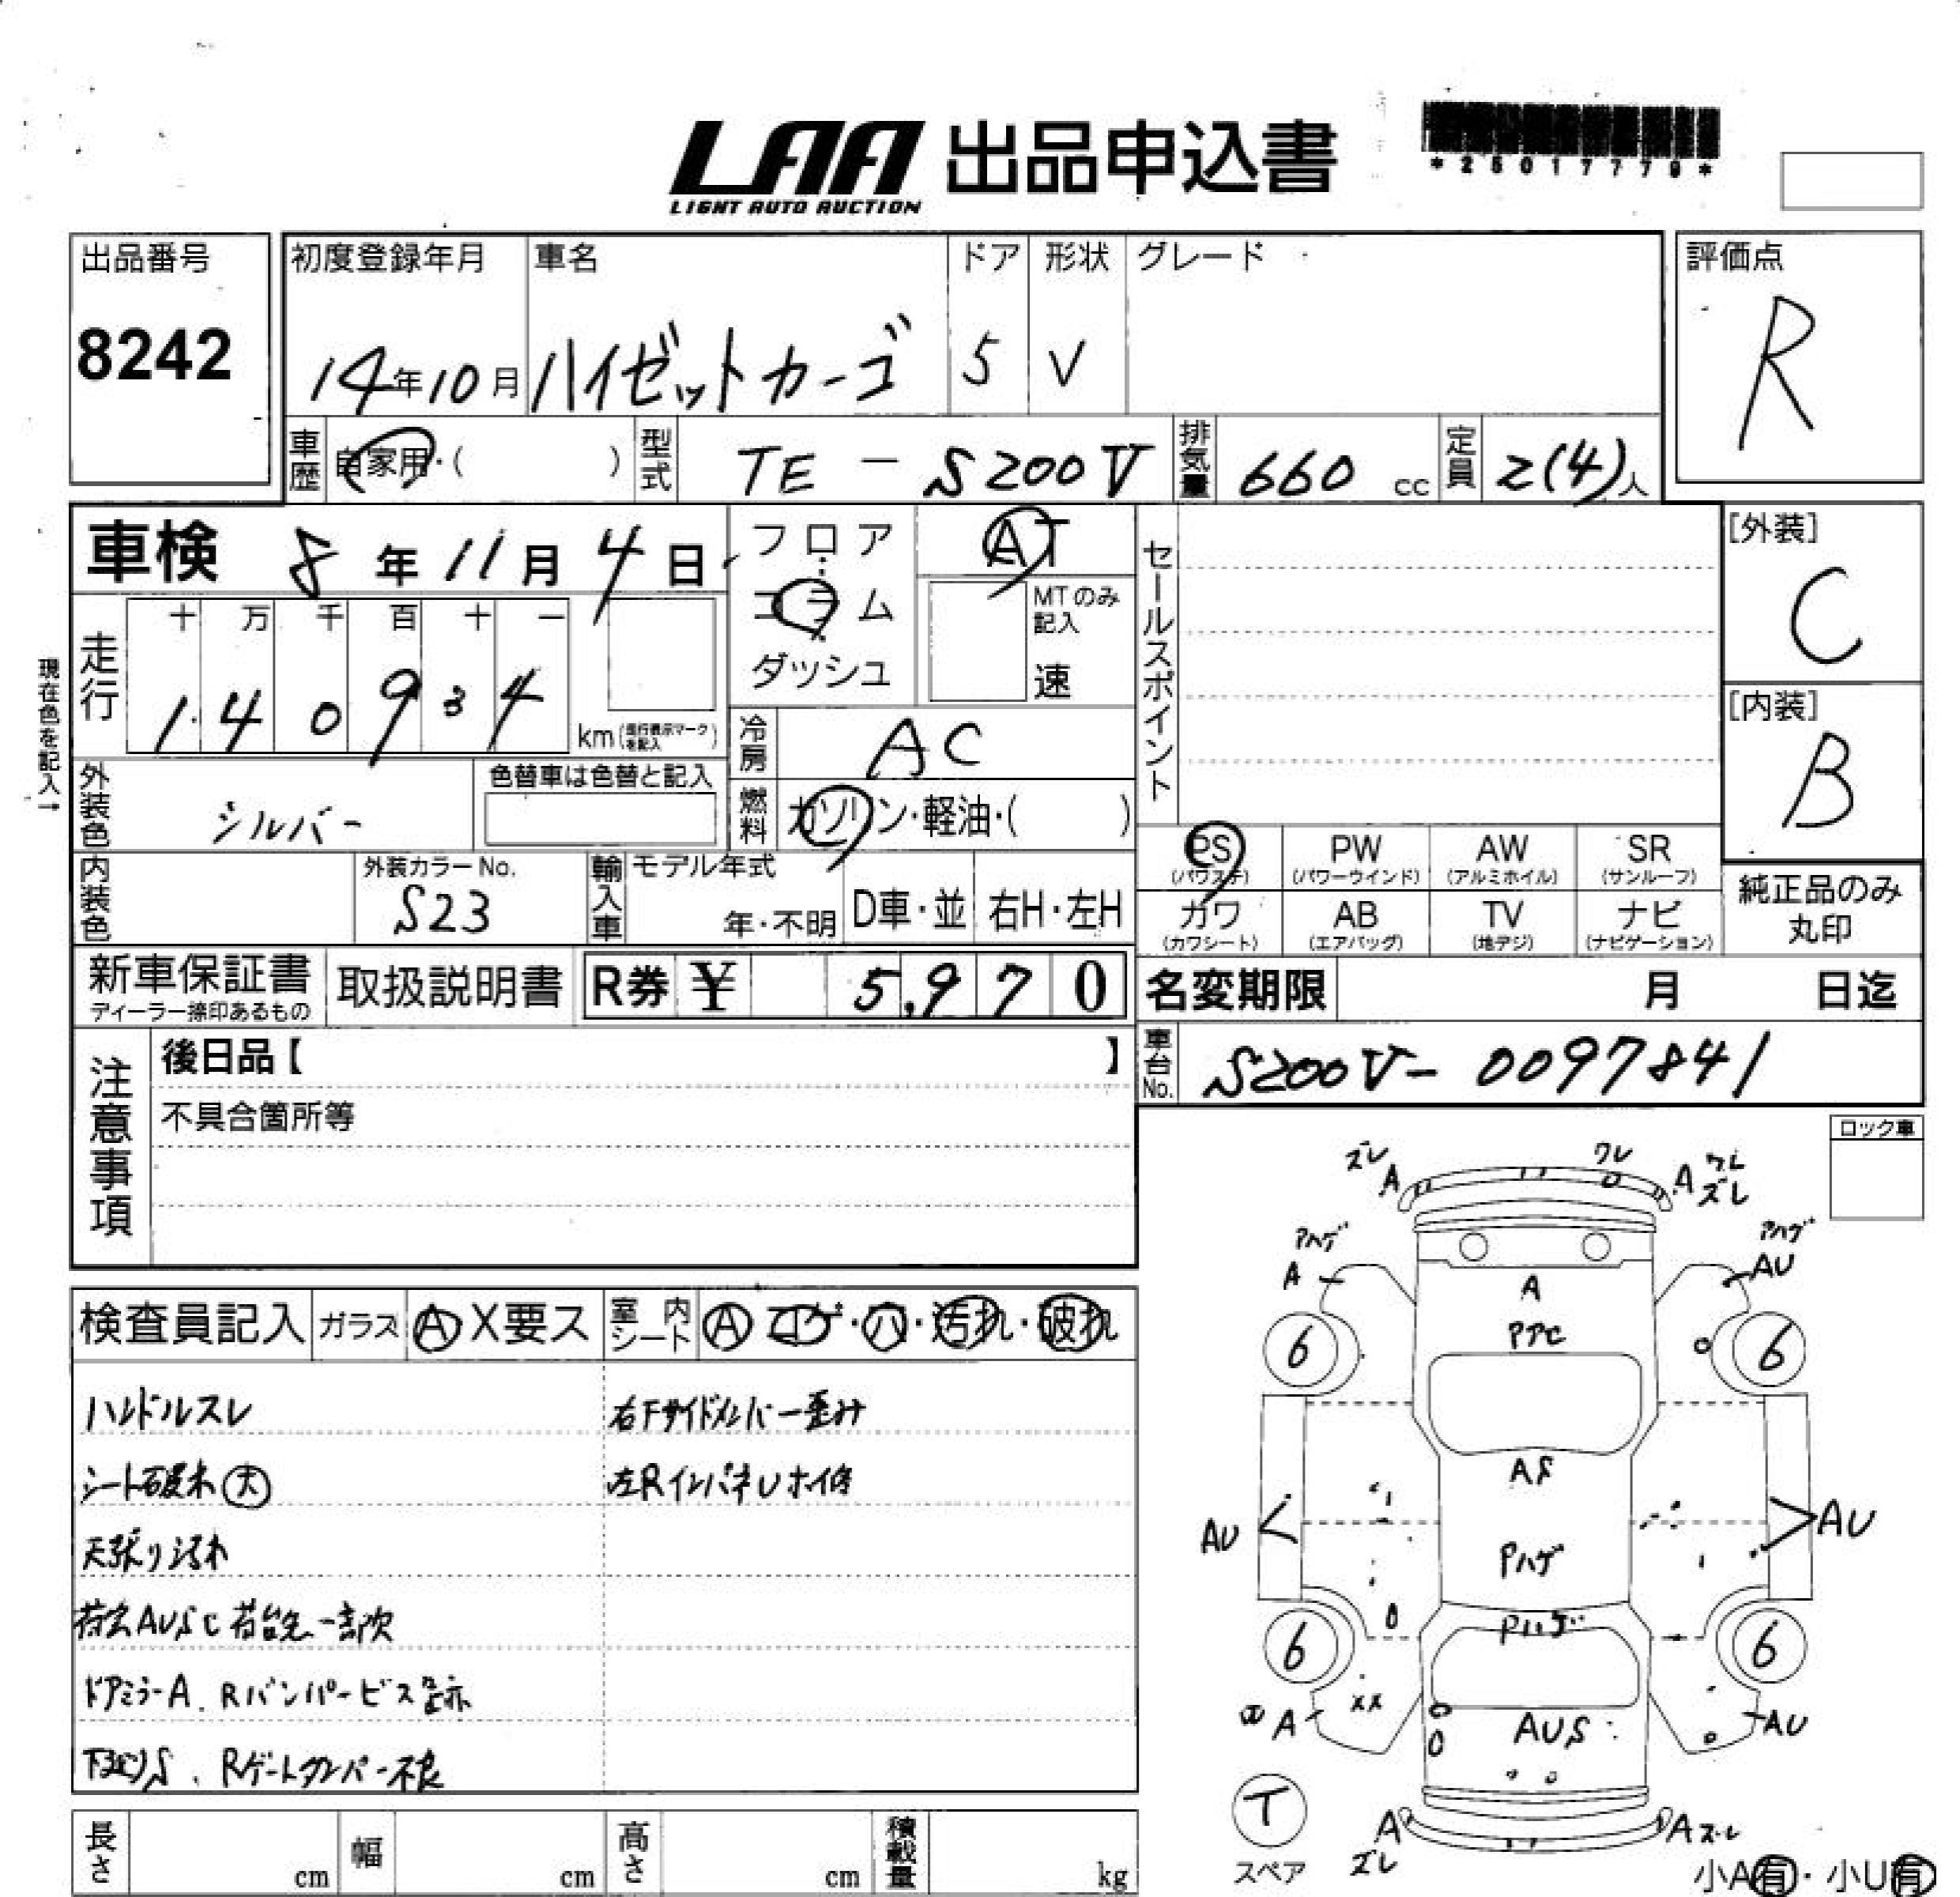 LAA 出品申込書
LIGHT AUTO AUCTION
*25017779*
出品番号
8242
初度登録年月
14年10月
車名
ハイゼットカーゴ
ドア
5
形状
V
グレード
評価点
R
車歴
自家用・( )
型式
TE - S200V
排気量
660 cc
定員
2(4)人
車検 8年11月4日
フロア
コラム
ダッシュ
AT
MTのみ記入
速
セールスポイント
[外装]
C
[内装]
B
現在色を記入→
走行
十 万 千 百 十 一
1 4 0 9 3 4
km(走行表示マークを記入)
冷房
AC
外装色
シルバー
色替車は色替と記入
燃料
ガソリン・軽油・( )
内装色
外装カラーNo.
S23
輸入車
モデル年式
年・不明
D車・並
右H・左H
PS
(パワステ)
PW
(パワーウインド)
AW
(アルミホイル)
SR
(サンルーフ)
カワ
(カワシート)
AB
(エアバッグ)
TV
(地デジ)
ナビ
(ナビゲーション)
純正品のみ
丸印
新車保証書
ディーラー捺印あるもの
取扱説明書
R券 ¥ 5,970
名変期限 月 日迄
注意事項
後日品【 】
不具合箇所等
車台No.
S200V- 0097841
ロック車
検査員記入
ガラス
A X要ス
室内シート
A コゲ・穴・汚れ・破れ
ハンドルスレ
シート破れ 大
天張り汚れ
荷室AUSC 荷台
ドアミラーA. Rバンパービス
下廻りS. Rゲートダンパー不良
右Fサイドメンバー歪み
左Rインパネ
ズレ
A
ワレ
A ワレ
ズレ
Pハゲ
A
Pハゲ
AU
A
6
6
AS
AU
AU
Pハゲ
Pハゲ
6
6
A
AUS
AU
T
スペア
A
ズレ
Aズレ
小A有・小U有
長さ cm
幅 cm
高さ cm
積載量 kg